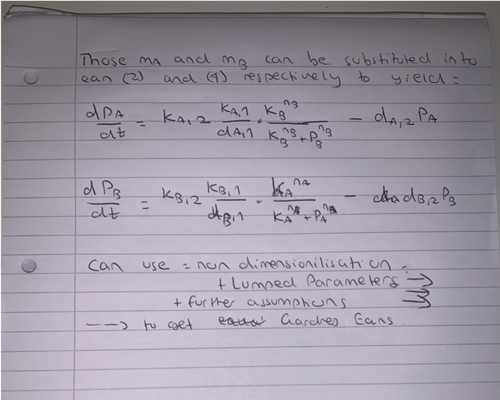 Those mA and mB can be substituted into
eqn (2) and (4) respectively to yield:
dPA/dt = kA,2 kA,1/dA,1 · KB^nB/(KB^nB + PB^nB) − dA,2 PA
dPB/dt = kB,2 kB,1/dB,1 · KA^nA/(KA^nA + PA^nA) − dB,2 PB
Can use = non dimensionilisation
+ Lumped Parameters →
+ further assumptions
--> to get Gardner Eqns